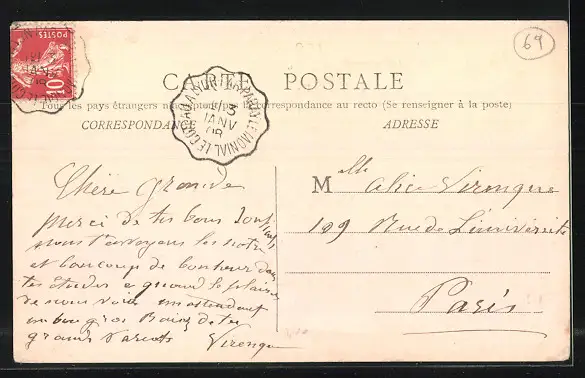 69
POSTES
10
CARTE POSTALE
Tous les pays étrangers n'acceptent pas la correspondance au recto (Se renseigner à la poste)
CORRESPONDANCE
ADRESSE
JANV
08
Chère grande
Merci de tes bons souhaits
nous t'envoyons les notres
et beaucoup de bonheur dans
tes études a quand le plaisir
de nous voir en attendant
un bon gros Baiser de tes
grands Parents Virenque
Mlle Alice Virenque
199 Rue de L'université
Paris